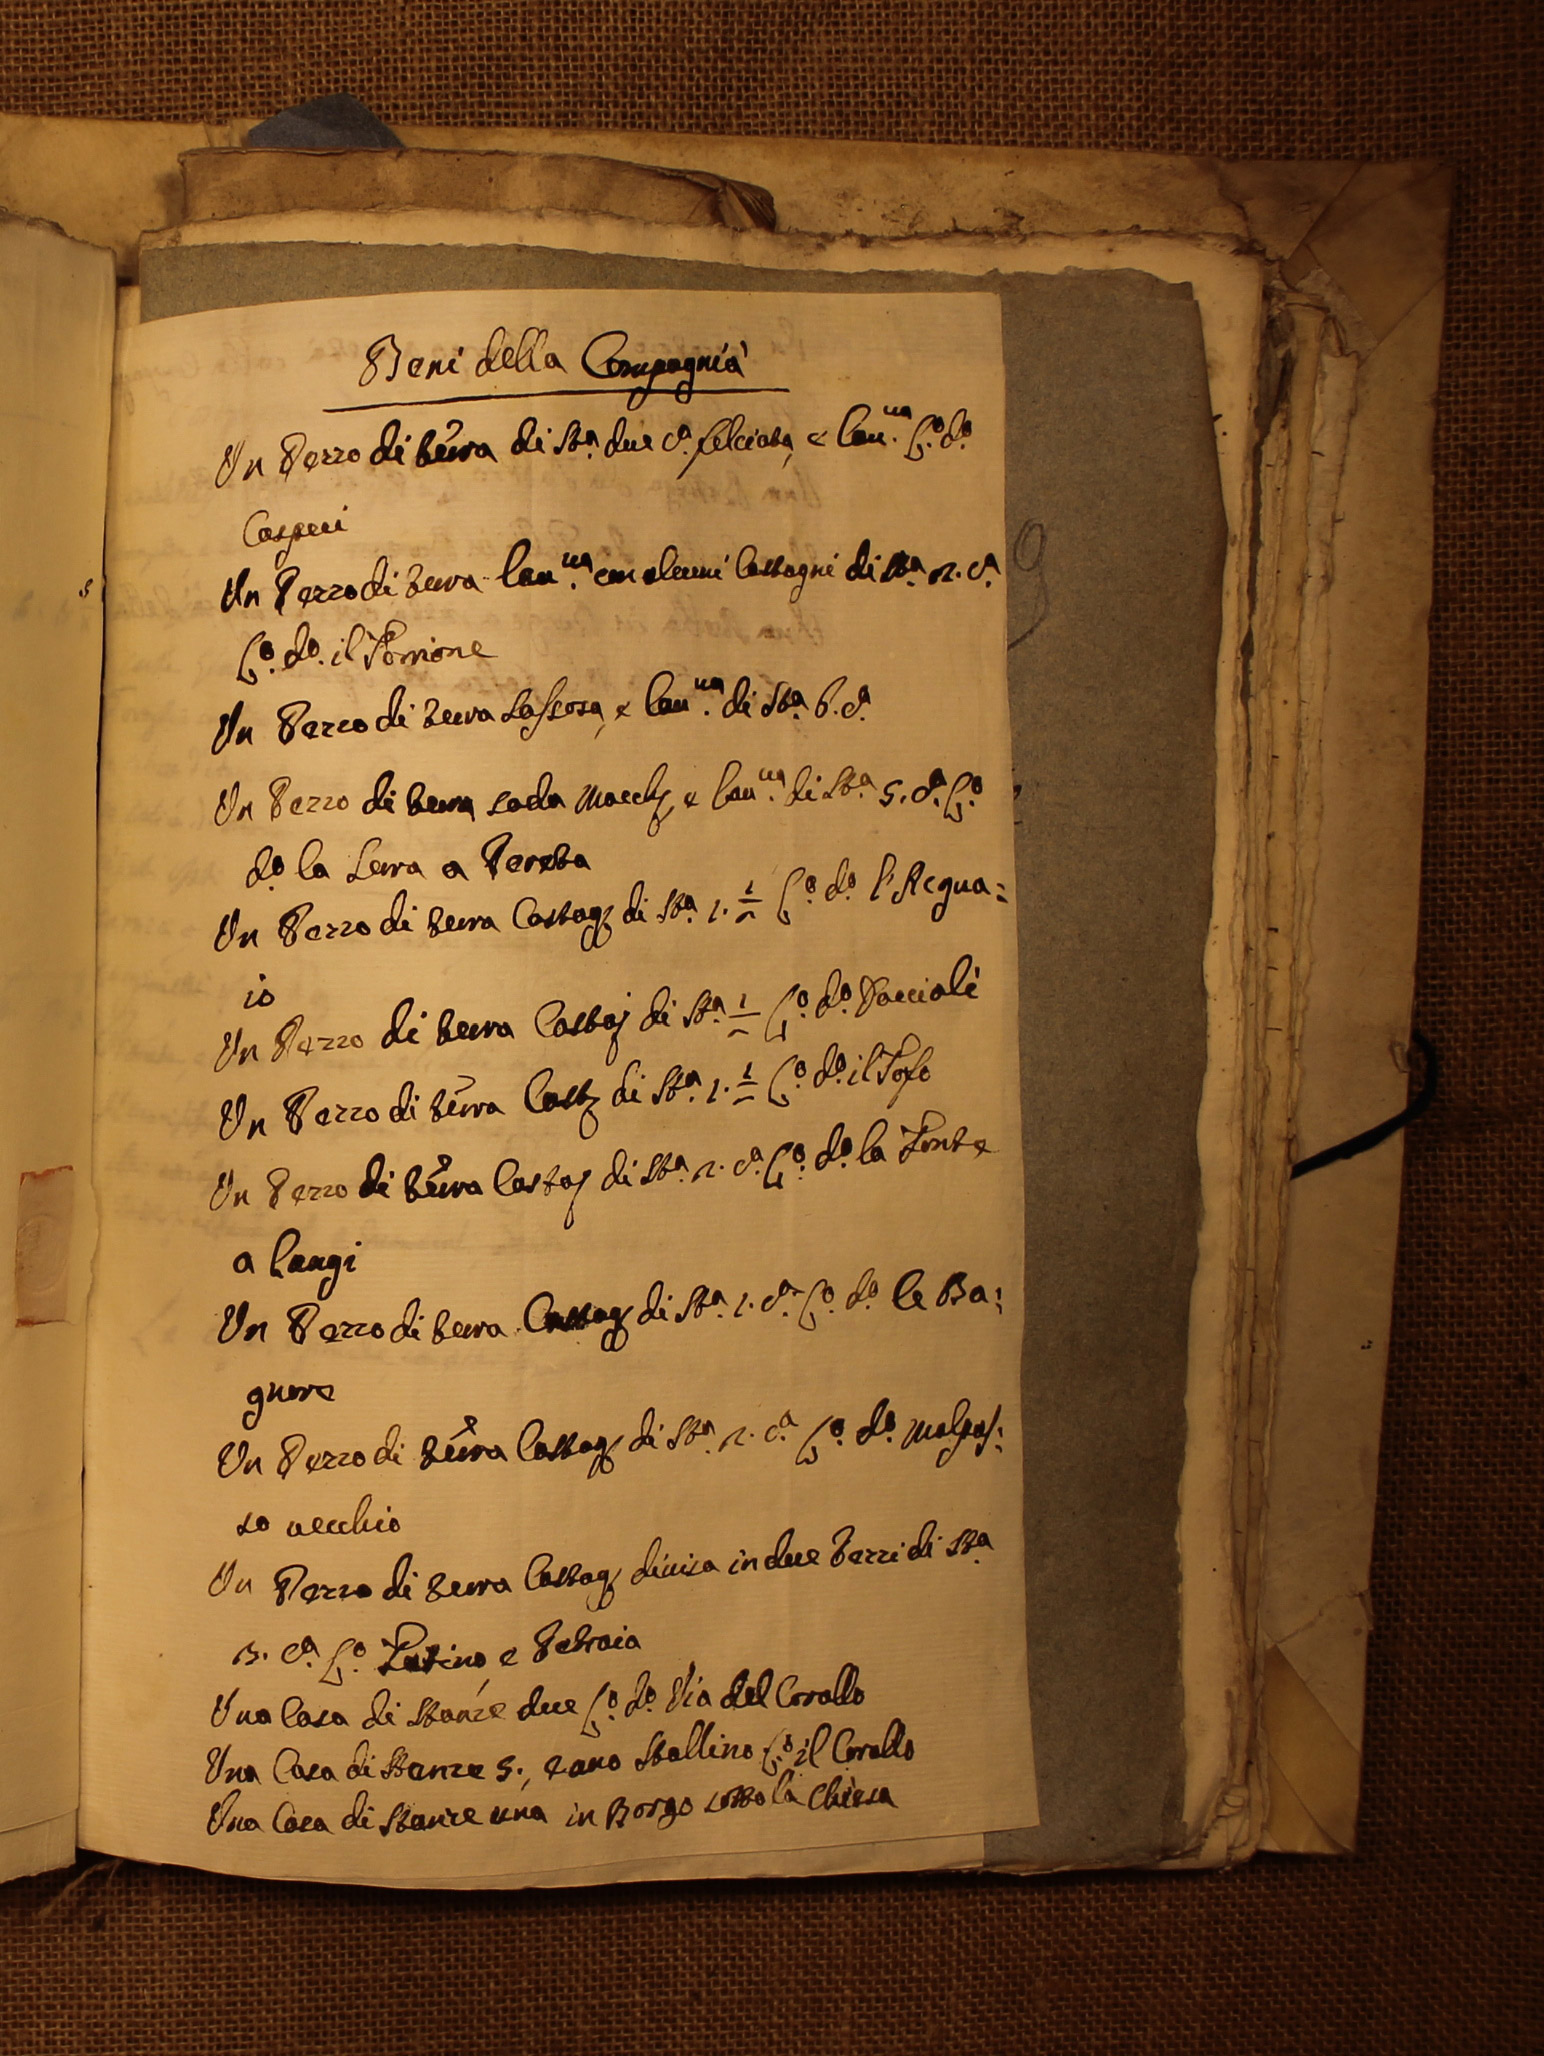 Beni della Compagnia
Un Pezzo di terra di Sta. due ca. felciata, e lau.ua L.o d.o
Casperi
Un Pezzo di terra lau.ua con alcuni Castagni di Sta. 2. ca.
L.o d.o il Torrione
Un Pezzo di terra Sassosa, e lau.ua di Sta. 6. ca.
Un Pezzo di terra soda Macch., e lau.ua di Sta. 5. ca. L.o
d.o la Serra a Pereta
Un Pezzo di terra Castag. di Sta. 1. 1/2 L.o d.o l'Acqua:
io
Un Pezzo di terra Castag. di Sta. 1/2 L.o d.o
Un Pezzo di terra Cast. di Sta. 1. 1/2 L.o d.o il Tofo
Un Pezzo di terra Castag. di Sta. 2. ca. L.o d.o la Fonte
a
Un Pezzo di terra Castag. di Sta. 1. ca. L.o d.o le Ba:
gnore
Un Pezzo di terra Castag. di Sta. 2. ca. L.o d.o Malpas:
so vecchio
Un Pezzo di terra Castag. divisa in due Pezzi di Sta.
3. ca. L.o e Petraia
Una Casa di Stanze due L.o d.o Via del Corallo
Una Casa di Stanze 5., e uno Stallino L.o il Corallo
Una Casa di Stanze una in Borgo sotto la Chiesa